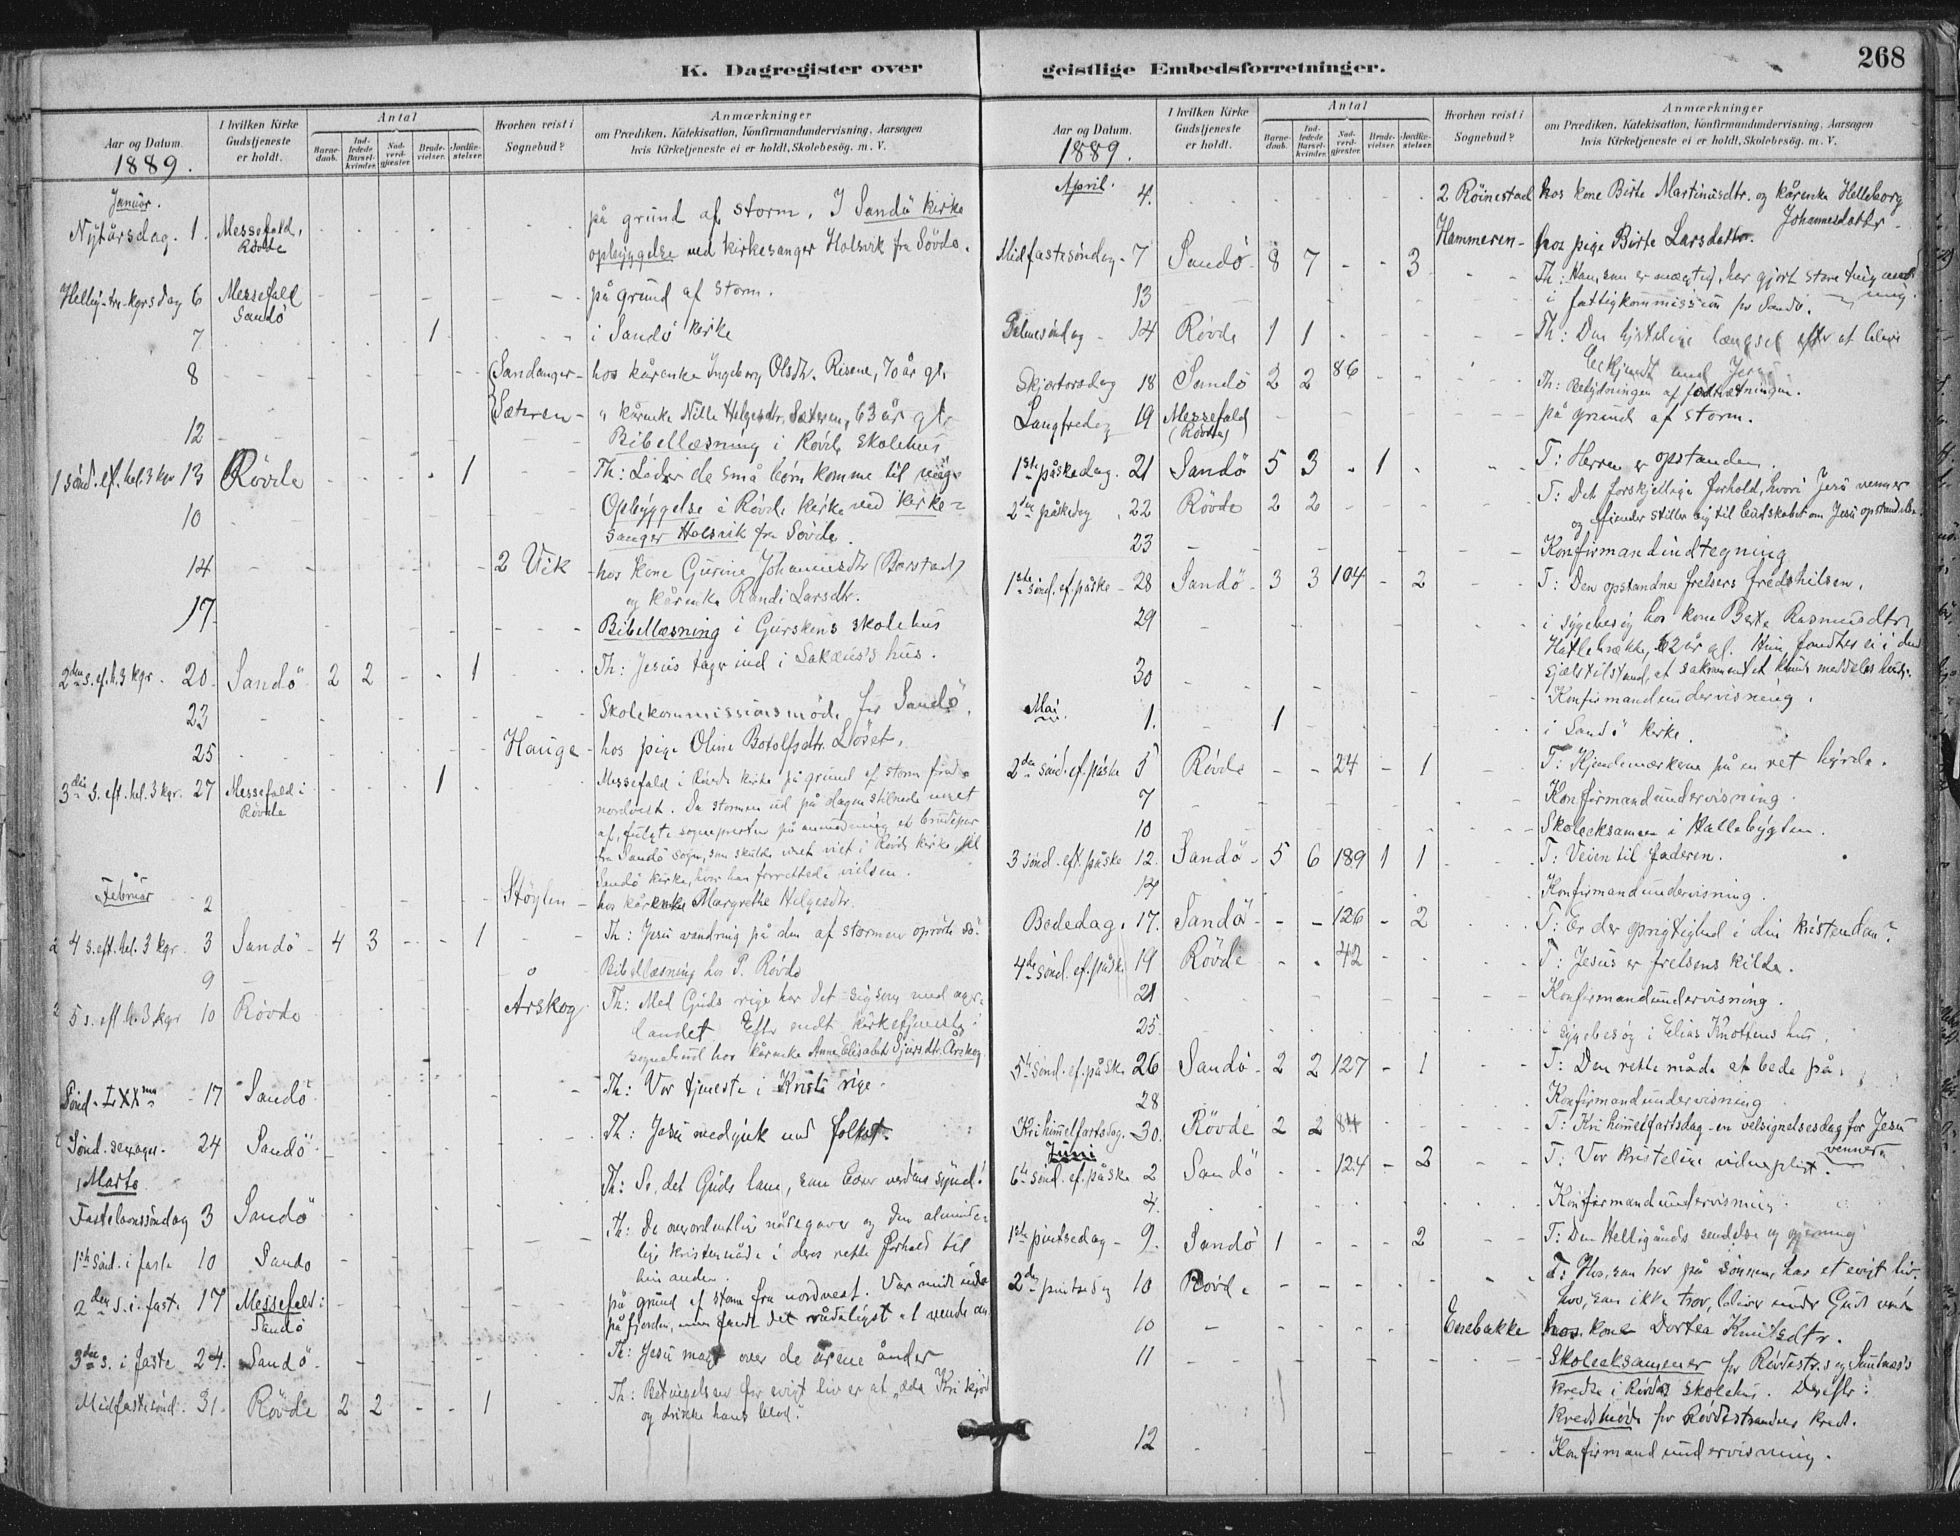 268
K. Dagregister over geistlige Embedsforretninger.
Aar og Datum. 1889.
I hvilken Kirke Gudstjeneste er holdt.
Antal
Barnedaab.
Indledede Barselkvinder.
Nadverdgjæster.
Brudevielser.
Jordfæstelser.
Hvorhen reist i Sognebud?
Anmærkninger
om Prædiken, Katekisation, Konfirmandundervisning, Aarsagen
hvis Kirketjeneste ei er holdt, Skolebesøg. m. V.
Januar.
Nytårsdag. 1. Messefald, Røvde på grund af storm. I Sandö kirke
opbyggelse ved kirkesanger Holsvik fra Søvde.
Hellig-tre-kgrsdag 6 Messefald Sandö på grund af storm.
7 1 i Sandö kirke
8 Sandanger hos kårenke Ingeborg Olsdtr. Risene, 70 år gl.
Sæteren " kårenke Nille Helgesdtr. Sæteren, 63 år gl.
12 Bibellæsning i Røvde skolehus
1 sönd. ef. hel. 3 kgr 13 Røvde 1 Th: Lader de små börn komme til mig.
10 Opbyggelse i Røvde kirke ved kirke-
sanger Holsvik fra Søvde.
14 2 Vik hos kone Gurine Johannesdtr (Barstad)
og kårenke Randi Larsdtr.
17. Bibellæsning i Gurskens skolehus
2den s. ef. h. 3 kgr. 20 Sandö 2 2 1 Th: Jesus tager ind i Sakæus's hus.
23 Skolekommissionsmöde for Sandö.
25 Hauge hos pige Oline Botolfsdtr. Løset.
3die s. eft. hel. 3 kgr. 27 Messefald i Røvde 1 Messefald i Røvde kirke på grund af storm fra
nordvest. Da stormen ud på dagen stilnede noget
af, fulgte sognepresten på anmodning et brudepar
fra Sandö sogn, som skulde været viet i Røvde kirke, til
Sandö kirke, hvor han forrettede vielsen.
Februar
2 Støylen hos kårenke Margrethe Helgesdtr.
4 s. eft. hel. 3 kgr. 3 Sandö 4 3 1 Th: Jesu vandring på den af stormen oprörte sö.
9 Bibellæsning hos P. Røvde
5 s. eft h. 3 kgr 10 Røvde Årskog Th: Med Guds rige har det sig som med ager-
landet. Efter endt kirketjeneste i
sognebud hos kårenke Anne Elisabet Sjursdtr. Årskog.
Sönd. LXXma 17 Sandö Th: Vor tjeneste i Kristi rige.
Sönd. sexages. 24 Sandö Th: Jesu medynk med folket.
Marts
Fastelavnssöndag 3 Sandö Th: Se, det Guds lam, som bær verdens synd!
1ste sönd. i faste 10 Sandö Th: De overordentlige nådegaver og den alminde-
lige kristennåde i deres rette forhold til
hinanden.
2den s. i faste 17 Messefald: Sandö på grund af storm fra nordvest. Var midt inde
på fjorden, men fandt det rådeligst at vende om
3die s. i faste 24. Sandö Th: Jesu magt over de urene ånder
Midfastesönd. 31. Røvde 2 2 1 Th: Betingelsen for evigt liv er at æde Kristi kjöd
og drikke hans blod.
Aar og Datum. 1889.
I hvilken Kirke Gudstjeneste er holdt.
Antal
Barnedaab.
Indledede Barselkvinder.
Nadverdgjæster.
Brudevielser.
Jordfæstelser.
Hvorhen reist i Sognebud?
Anmærkninger
om Prædiken, Katekisation, Konfirmandundervisning, Aarsagen
hvis Kirketjeneste ei er holdt, Skolebesøg. m. V.
April.
4. 2 Röinestad hos kone Birte Martinusdtr. og kårenke Helleborg
Johannesdatter
Hammeren hos pige Birte Larsdatter.
Midfastesöndag 7 Sandö 8 7 3 Th: Han, som er mægtig, har gjort store ting mod mig.
13 i fattigkommission for Sandö.
Palmesöndag 14 Røvde 1 1 Th: Den hjertelige længsel efter at blive
bekjendt med Jesus
Skjærtorsdag 18 Sandö 2 2 86 Th: Betydningen af fodtvætningen.
Langfredag 19 Messefald (Røvde) på grund af storm.
1ste påskedag. 21 Sandö 5 3 1 T: Herren er opstanden.
2den påskedag 22 Røvde 2 2 T: Det forskjellige forhold, hvori Jesu venner
og fiender stiller sig til budskabet om Jesu opstandelse.
23 Konfirmandindtegning
1ste sönd. ef. påske 28 Sandö 3 3 104 2 T: Den opstandne frelsers fredshilsen.
29 i sygebesög hos kone Berte Rasmusdtr
Hatlebrække, 62 år gl. Hun fandtes ei i den
sjælstilstand, at sakramentet kunde meddeles hende.
30 Konfirmandundervisning.
Mai
1. 1 i Sandö kirke.
2den sönd. ef. påske 5 Røvde 24 1 T: Kjendemærkerne på en ret hyrde.
7 Konfirmandundervisning.
10 Skoleeksamen i Hallebygden.
3 sönd. eft. påske 12. Sandö 5 6 189 1 1 T: Veien til faderen.
14 Konfirmandundervisning.
Bededag. 17. Sandö 126 2 T: Er der oprigtighed i din kristendom?
4de sönd. ef. påske 19 Røvde 42 T: Jesus er frelsens kilde.
21 Konfirmandundervisning.
25. i sygebesög i Elias Knottens hus.
5te sönd. ef. påske 26 Sandö 2 2 127 1 T: Den rette måde at bede på.
28 Konfirmandundervisning
Kri himmelfartsdag. 30. Røvde 2 2 84 T: Kri himmelfartsdag - en velsignelsesdag for Jesu
venner
Juni
6te sönd. ef. påske 2 Sandö 124 2 T: Vor kristelige vidnepligt.
4. Konfirmandundervisning.
1ste pintsedag 9. Sandö 1 2 T: Den Helligånds sendelse og gjerning
2den pintsedag 10 Røvde T: Hvo, som tror på sönnen, har et evigt liv.
hvo, som ikke tror, bliver under Guds vrede
10 Enebakke hos kone Dortea Knutsdtr.
11 Skoleeksamener for Røvdestr.s og
kredse i Røvde skolehus. Derefter:
kredsmöde for Røvdestrandens kreds.
12 Konfirmandundervisning.